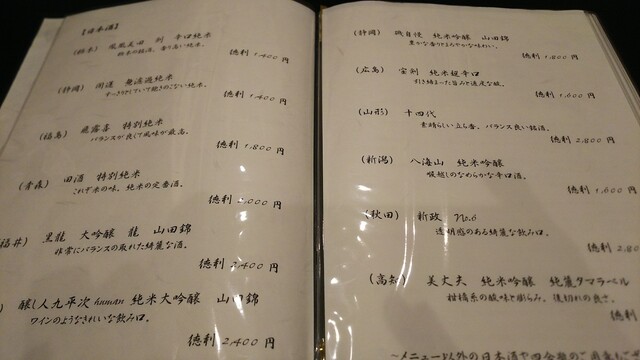 【日本酒】
(栃木) 鳳凰美田 剣 辛口純米
栃木の銘酒、香り高い純米。
徳利 1,400 円
(静岡) 開運 無濾過純米
すっきりとしていて飽きのこない純米。
徳利 1,400 円
(福島) 飛露喜 特別純米
バランスが良くて風味が最高。
徳利 1,800 円
(青森) 田酒 特別純米
これぞ米の味。純米の定番酒。
徳利 2,000 円
福井) 黒龍 大吟醸 龍 山田錦
非常にバランスの取れた綺麗な酒。
徳利 2,400 円
) 醸し人九平次 human 純米大吟醸 山田錦
ワインのようなきれいな飲み口。
徳利 2,400 円
(静岡) 磯自慢 純米吟醸 山田錦
豊かな香りとまろやかな味わい。
徳利 1,800 円
(広島) 宝剣 純米超辛口
引き締まった旨みと適度な酸。
徳利 1,600 円
(山形) 十四代
素晴らしい立ち香。バランス良い銘酒。
徳利 2,800 円
(新潟) 八海山 純米吟醸
喉越しのなめらかな辛口酒。
徳利 1,600 円
(秋田) 新政 No.6
透明感のある綺麗な飲み口。
徳利 2,80
(高知) 美丈夫 純米吟醸 純麗タマラベル
柑橘系の酸味と膨らみ。後切れの良さ。
徳利
〜メニュー以外の日本酒や四合瓶のご用意もご